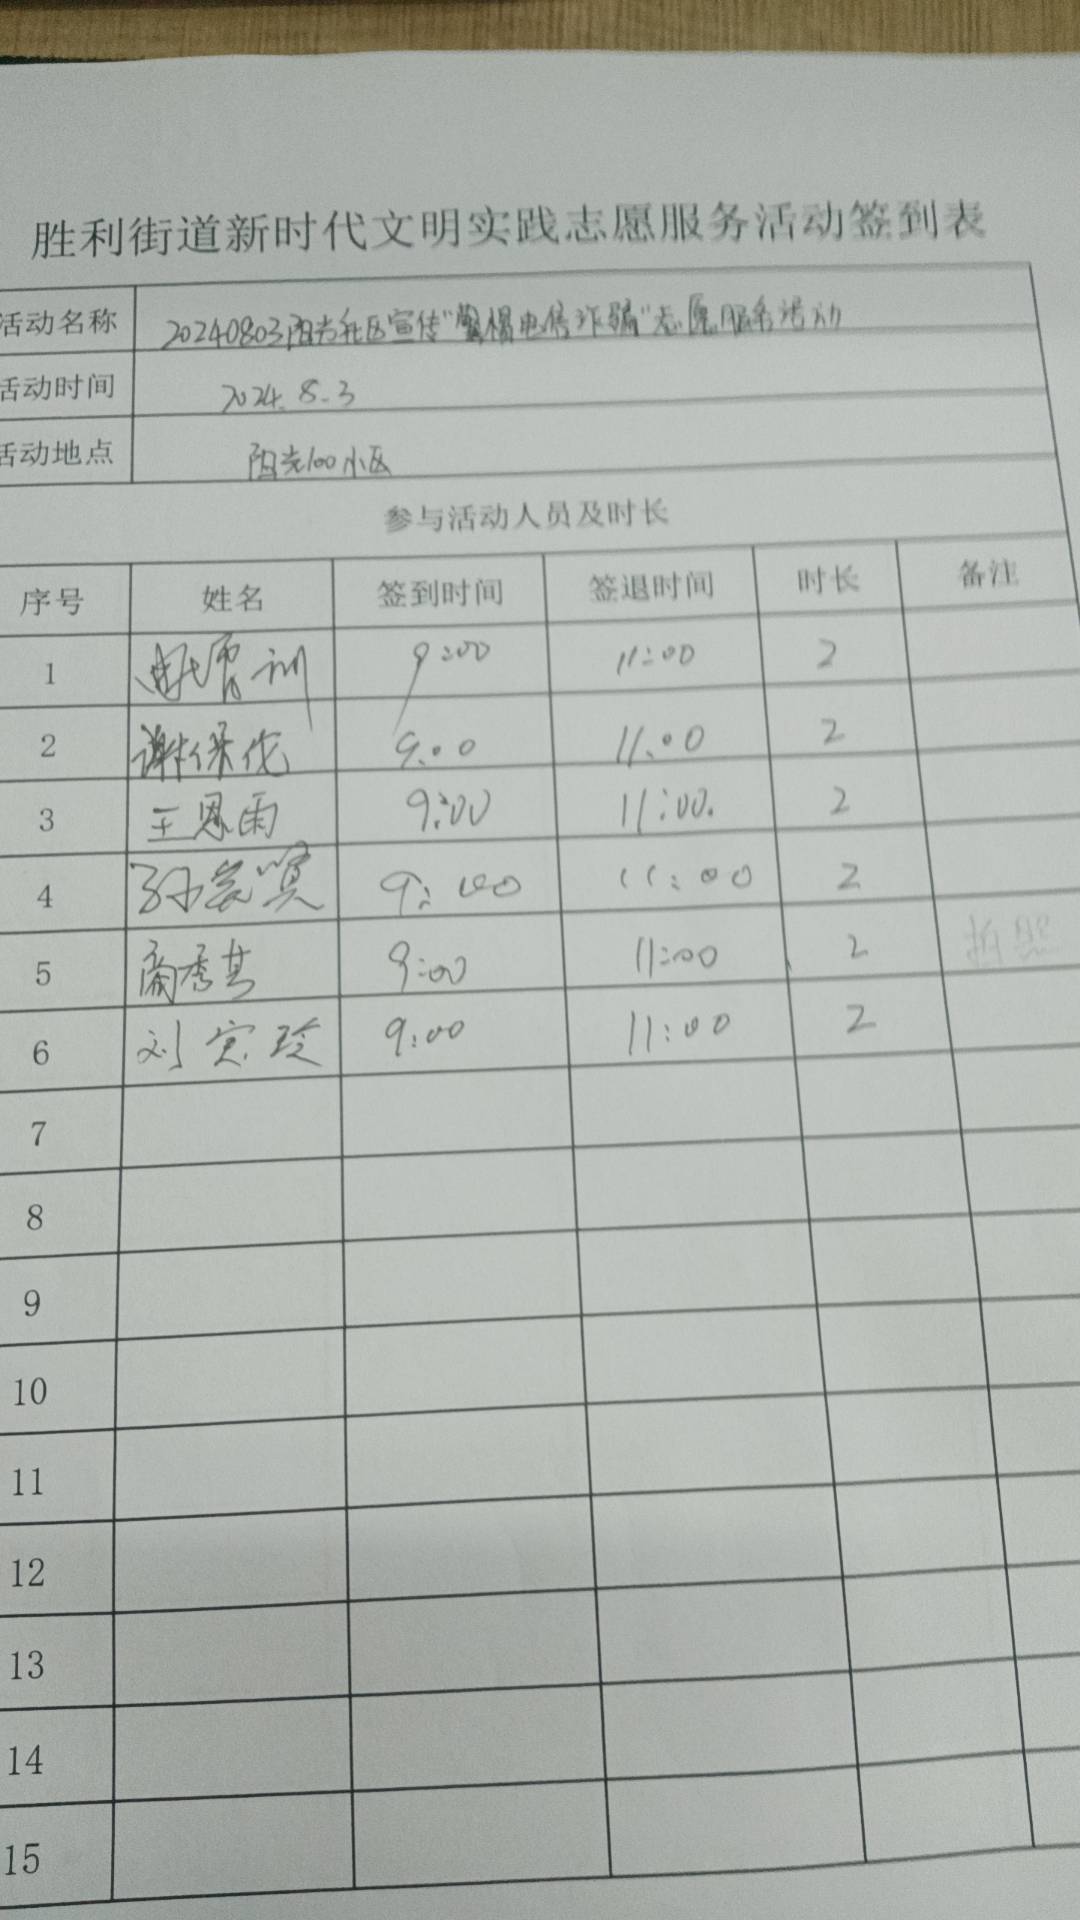 胜利街道新时代文明实践志愿服务活动签到表
活动名称 20240803阳光社区宣传"警惕电信诈骗"志愿服务活动
活动时间 2024.8.3
活动地点 阳光100小区
参与活动人员及时长
序号 姓名 签到时间 签退时间 时长 备注
1 训 9:00 11:00 2
2 谢保 9:00 11:00 2
3 王恩雨 9:00 11:00. 2
4 孙 9:00 11:00 2
5 商秀其 9:00 11:00 2 拍照
6 刘 玲 9:00 11:00 2
7
8
9
10
11
12
13
14
15